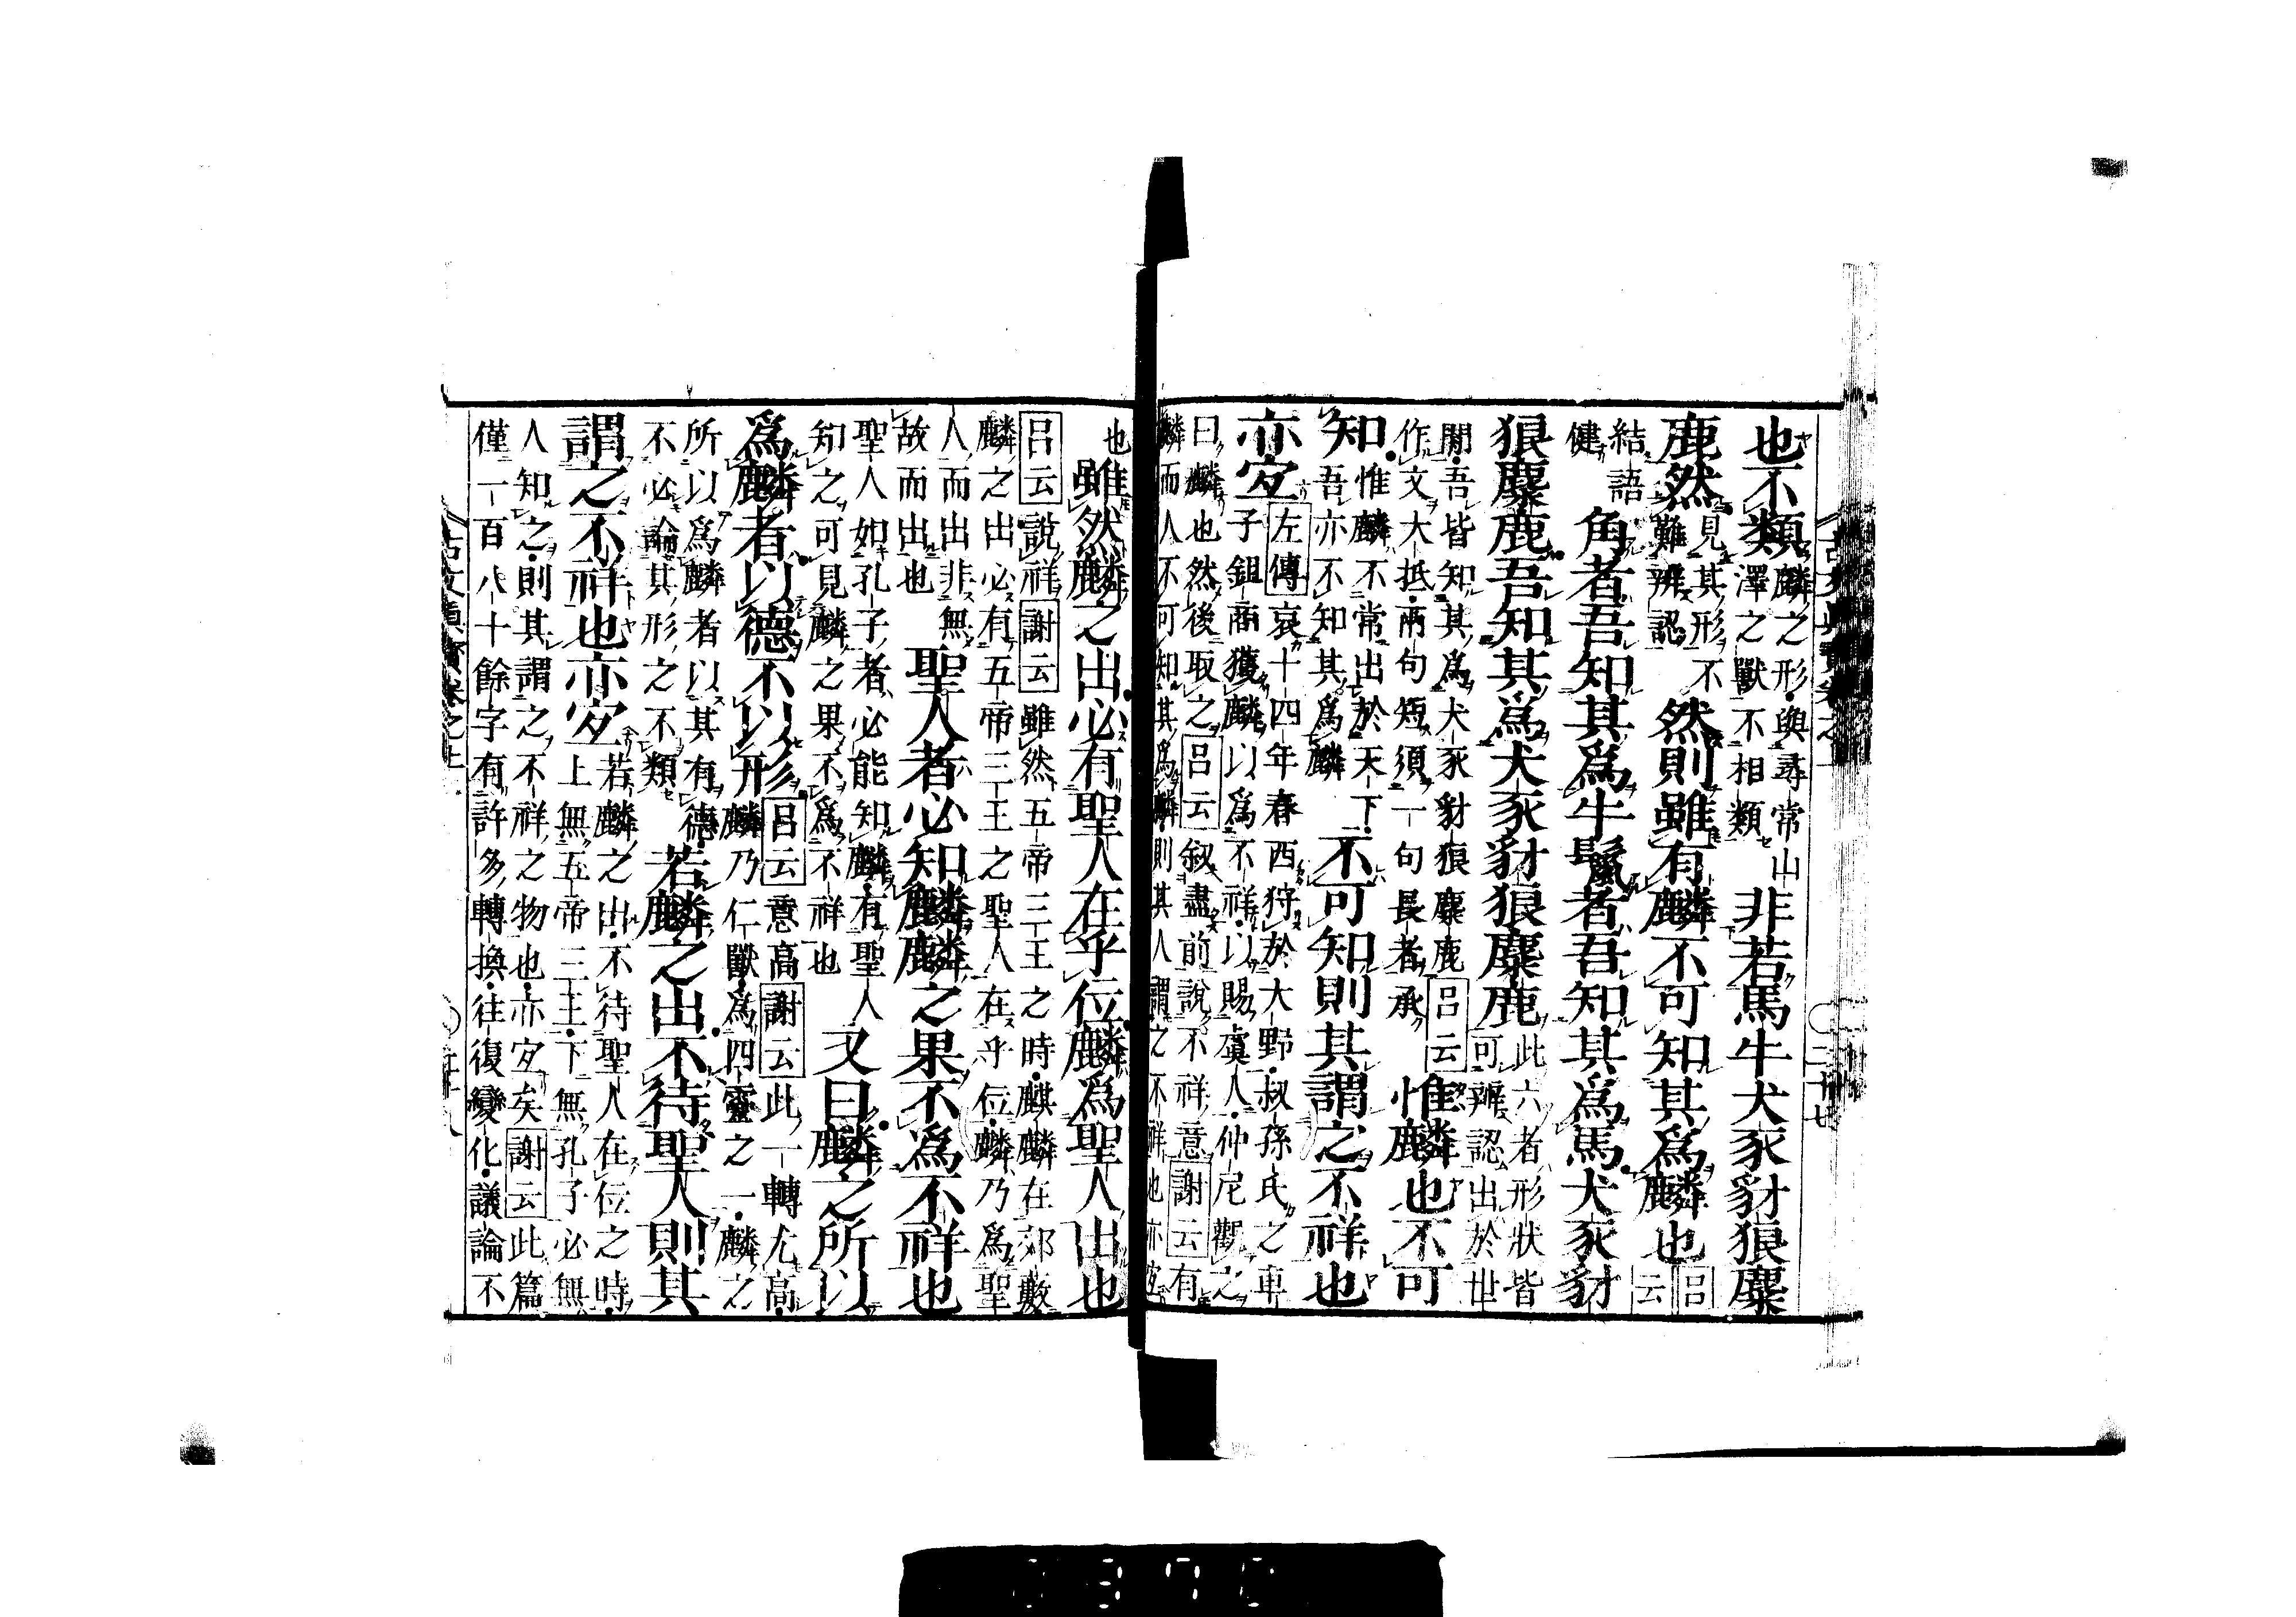 也不類麟之形與尋常山澤之獸不相類非若馬牛犬豕豺狼麋
鹿然見其形不難辨認然則雖有麟不可知其爲麟也呂云
結語健角者吾知其爲牛鬣者吾知其爲馬犬豕豺
狼麋鹿吾知其爲犬豕豺狼麋鹿此六者形狀皆可辨認出於世
閒吾皆知其爲犬豕豺狼麋鹿呂云作文大抵兩句短須一句長者承惟麟也不可
知惟麟不常出於天下吾亦不知其爲麟不可知則其謂之不祥也
亦宜左傳哀十四年春西狩於大野叔孫氏之車子鉏商獲麟以爲不祥以賜虞人仲尼觀之
曰麟也然後取之呂云叙盡前說不祥意謝云有麟而人不可知其爲麟則其人謂之不祥也亦宜
也雖然麟之出必有聖人在乎位麟爲聖人出也
呂云說祥謝云雖然五帝三王之時麒麟在郊藪麟之出必有五帝三王之聖人在乎位麟乃爲聖
人而出非無故而出也聖人者必知麟麟之果不爲不祥也
聖人如孔子者必能知麟有聖人知之可見麟之果不爲不祥也又曰麟之所以
爲麟者以德不以形呂云意高謝云此一轉尤高麟乃仁獸爲四靈之一麟之
所以爲麟者以其有德不必論其形之不類若麟之出不待聖人則其
謂之不祥也亦宜若麟之出不待聖人在位之時上無五帝三王下無孔子必無
人知之則其謂之不祥之物也亦宜矣謝云此篇僅一百八十餘字有許多轉換往復變化議論不
古文眞寶卷之上